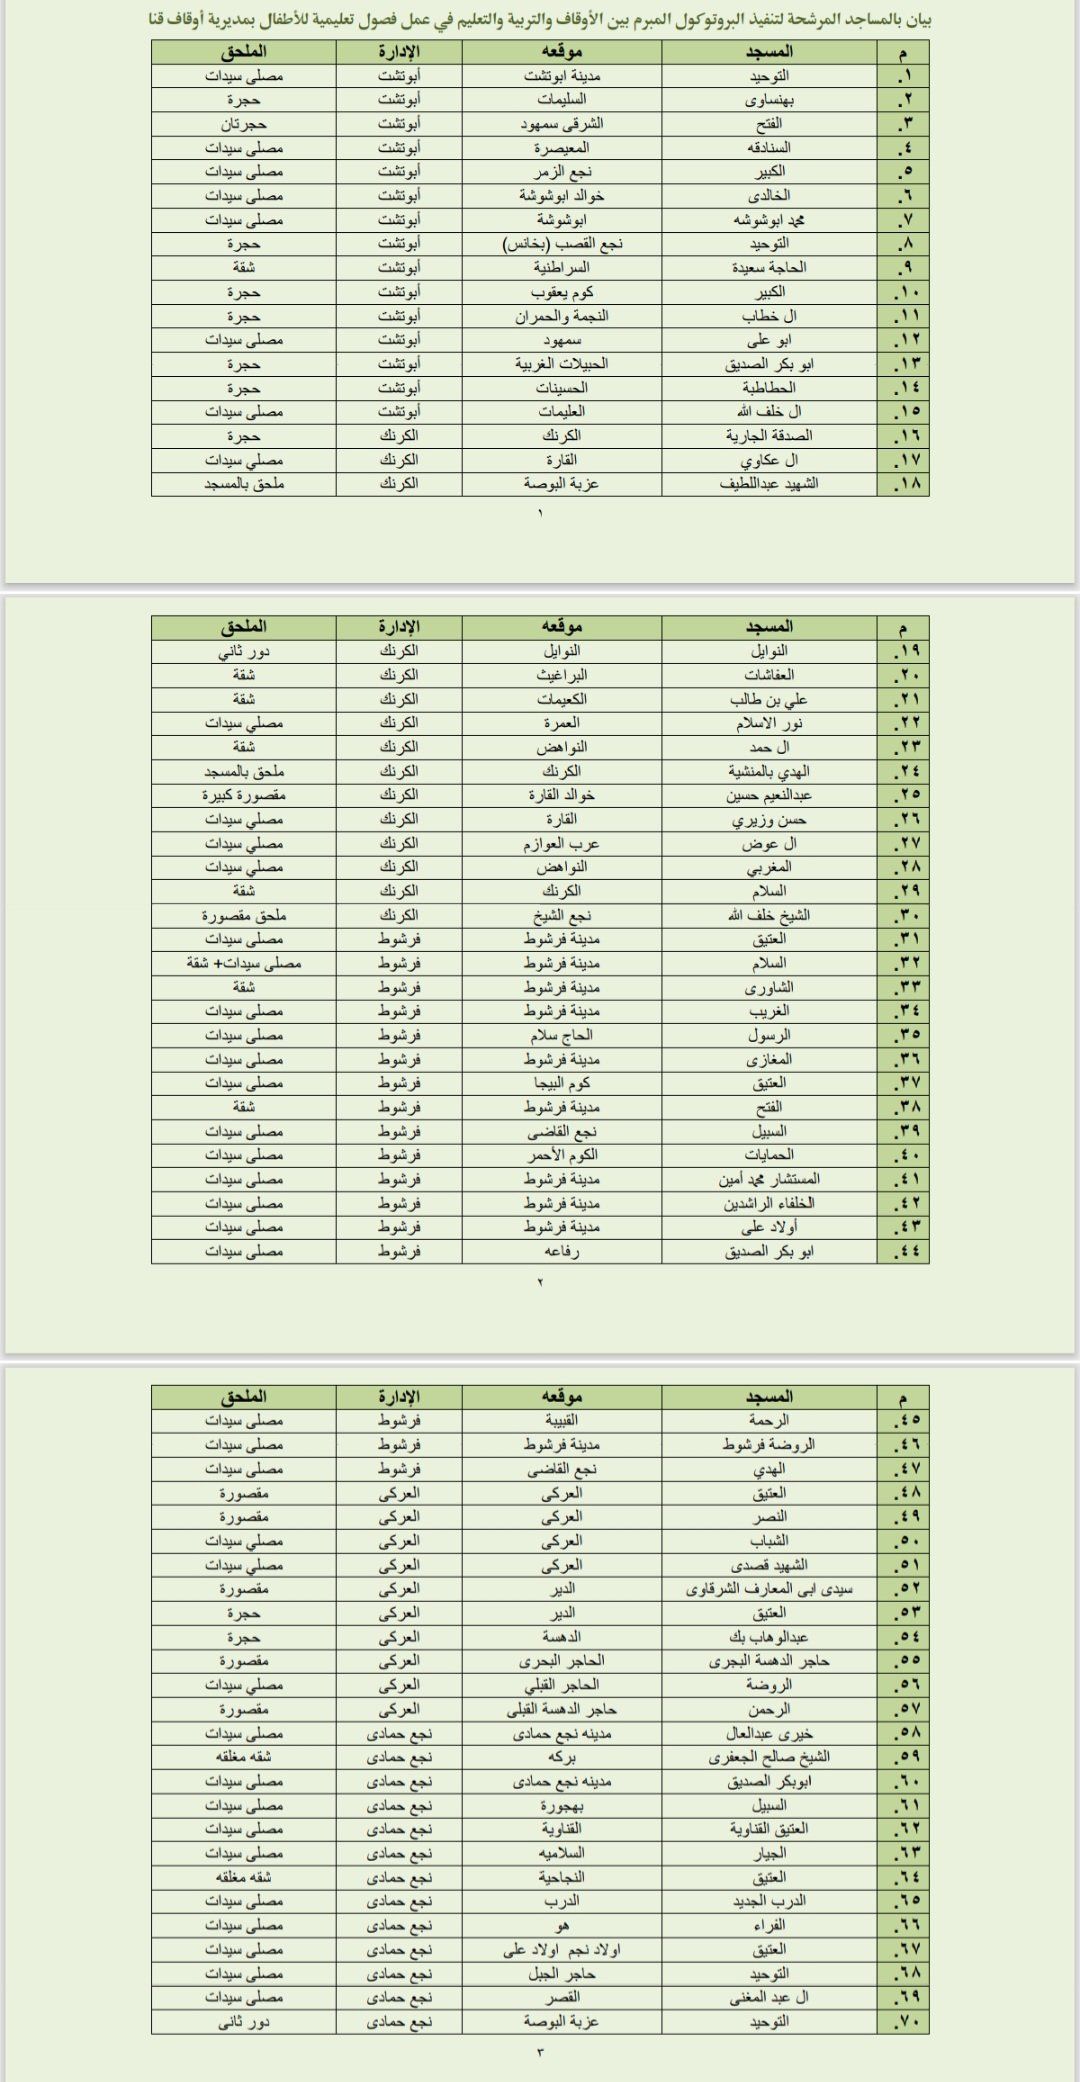 بيان بالمساجد المرشحة لتنفيذ البروتوكول المبرم بين الأوقاف والتربية والتعليم في عمل فصول تعليمية للأطفال بمديرية أوقاف قنا
م المسجد موقعه الإدارة الملحق
١. التوحيد مدينة ابوتشت أبوتشت مصلى سيدات
٢. بهنساوى السليمات أبوتشت حجرة
٣. الفتح الشرقى سمهود أبوتشت حجرتان
٤. السنادقه المعيصرة أبوتشت مصلى سيدات
٥. الكبير نجع الزمر أبوتشت مصلى سيدات
٦. الخالدى خوالد ابوشوشة أبوتشت مصلى سيدات
٧. محمد ابوشوشه ابوشوشة أبوتشت مصلى سيدات
٨. التوحيد نجع القصب (بخانس) أبوتشت حجرة
٩. الحاجة سعيدة السراطنية أبوتشت شقة
١٠. الكبير كوم يعقوب أبوتشت حجرة
١١. ال خطاب النجمة والحمران أبوتشت حجرة
١٢. ابو على سمهود أبوتشت مصلى سيدات
١٣. ابو بكر الصديق الحبيلات الغربية أبوتشت حجرة
١٤. الحطاطبة الحسينات أبوتشت حجرة
١٥. ال خلف الله العليمات أبوتشت مصلى سيدات
١٦. الصدقة الجارية الكرنك الكرنك حجرة
١٧. ال عكاوي القارة الكرنك مصلي سيدات
١٨. الشهيد عبداللطيف عزبة البوصة الكرنك ملحق بالمسجد
١
م المسجد موقعه الإدارة الملحق
١٩. النوايل النوايل الكرنك دور ثاني
٢٠. العفاشات البراغيث الكرنك شقة
٢١. علي بن طالب الكعيمات الكرنك شقة
٢٢. نور الاسلام العمرة الكرنك مصلي سيدات
٢٣. ال حمد النواهض الكرنك شقة
٢٤. الهدي بالمنشية الكرنك الكرنك ملحق بالمسجد
٢٥. عبدالنعيم حسين خوالد القارة الكرنك مقصورة كبيرة
٢٦. حسن وزيري القارة الكرنك مصلي سيدات
٢٧. ال عوض عرب العوازم الكرنك مصلي سيدات
٢٨. المغربي النواهض الكرنك مصلي سيدات
٢٩. السلام الكرنك الكرنك شقة
٣٠. الشيخ خلف الله نجع الشيخ الكرنك ملحق مقصورة
٣١. العتيق مدينة فرشوط فرشوط مصلى سيدات
٣٢. السلام مدينة فرشوط فرشوط مصلى سيدات+ شقة
٣٣. الشاورى مدينة فرشوط فرشوط شقة
٣٤. الغريب مدينة فرشوط فرشوط مصلى سيدات
٣٥. الرسول الحاج سلام فرشوط مصلى سيدات
٣٦. المغازى مدينة فرشوط فرشوط مصلى سيدات
٣٧. العتيق كوم البيجا فرشوط مصلى سيدات
٣٨. الفتح مدينة فرشوط فرشوط شقة
٣٩. السبيل نجع القاضى فرشوط مصلى سيدات
٤٠. الحمايات الكوم الأحمر فرشوط مصلى سيدات
٤١. المستشار محمد أمين مدينة فرشوط فرشوط مصلى سيدات
٤٢. الخلفاء الراشدين مدينة فرشوط فرشوط مصلى سيدات
٤٣. أولاد على مدينة فرشوط فرشوط مصلى سيدات
٤٤. ابو بكر الصديق رفاعه فرشوط مصلى سيدات
٢
م المسجد موقعه الإدارة الملحق
٤٥. الرحمة القبيبة فرشوط مصلى سيدات
٤٦. الروضة فرشوط مدينة فرشوط فرشوط مصلى سيدات
٤٧. الهدي نجع القاضى فرشوط مصلى سيدات
٤٨. العتيق العركى العركى مقصورة
٤٩. النصر العركى العركى مقصورة
٥٠. الشباب العركى العركى مصلي سيدات
٥١. الشهيد قصدى العركى العركى مصلي سيدات
٥٢. سيدى ابى المعارف الشرقاوى الدير العركى مقصورة
٥٣. العتيق الدير العركى حجرة
٥٤. عبدالوهاب بك الدهسة العركى حجرة
٥٥. حاجر الدهسة البحرى الحاجر البحرى العركى مقصورة
٥٦. الروضة الحاجر القبلي العركى مصلي سيدات
٥٧. الرحمن حاجر الدهسة القبلى العركى مقصورة
٥٨. خيرى عبدالعال مدينه نجع حمادى نجع حمادى مصلى سيدات
٥٩. الشيخ صالح الجعفرى بركه نجع حمادى شقه مغلقه
٦٠. ابوبكر الصديق مدينه نجع حمادى نجع حمادى مصلى سيدات
٦١. السبيل بهجورة نجع حمادى مصلى سيدات
٦٢. العتيق القناوية القناوية نجع حمادى مصلى سيدات
٦٣. الجيار السلاميه نجع حمادى مصلى سيدات
٦٤. العتيق النجاحية نجع حمادى شقه مغلقه
٦٥. الدرب الجديد الدرب نجع حمادى مصلى سيدات
٦٦. الفراء هو نجع حمادى مصلى سيدات
٦٧. العتيق اولاد نجم اولاد على نجع حمادى مصلى سيدات
٦٨. التوحيد حاجر الجبل نجع حمادى مصلى سيدات
٦٩. ال عبد المغنى القصر نجع حمادى مصلى سيدات
٧٠. التوحيد عزبة البوصة نجع حمادى دور ثانى
٣